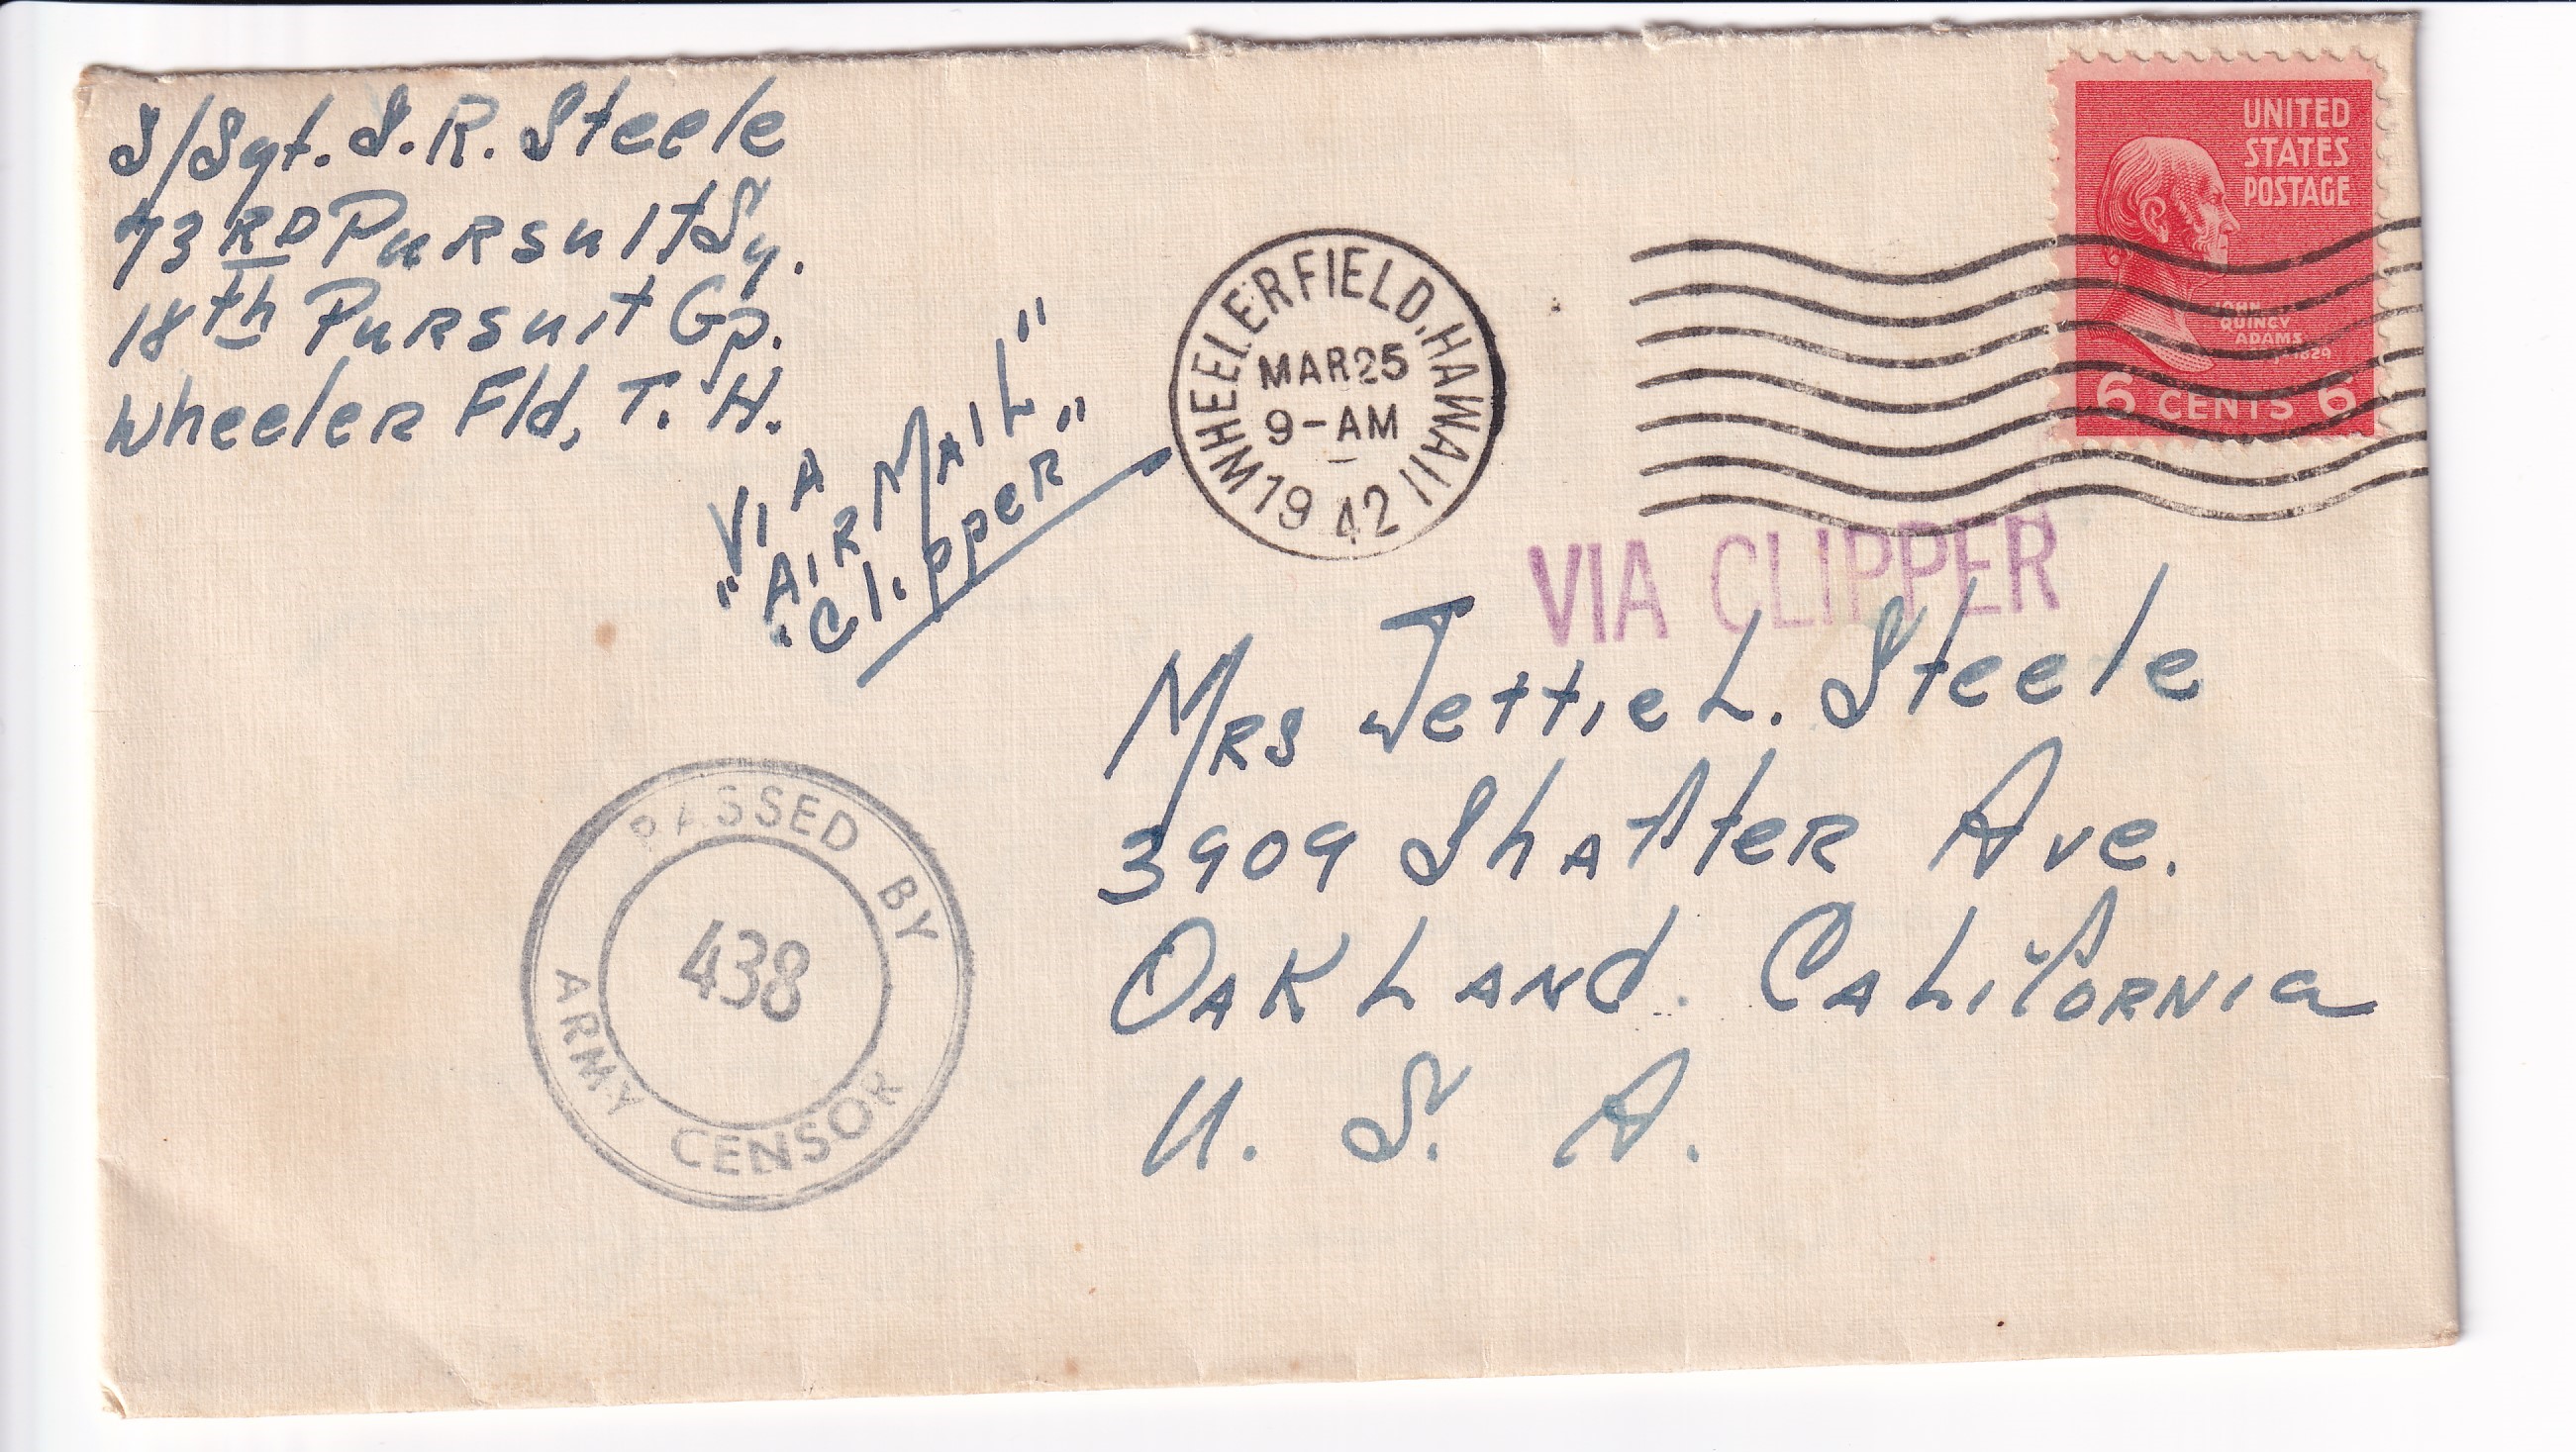 S/Sgt. S. R. Steele
73RD Pursuit Sq.
18th Pursuit Gp.
Wheeler Fld, T. H.
VIA
"AIR MAIL"
"Clipper"
WHEELER FIELD, HAWAII
MAR 25
9-AM
1942
UNITED
STATES
POSTAGE
JOHN
QUINCY
ADAMS
1829
6 CENTS 6
VIA CLIPPER
Mrs Jettie L. Steele
3909 Shafter Ave.
Oakland. California
U. S. A.
PASSED BY
438
ARMY CENSOR